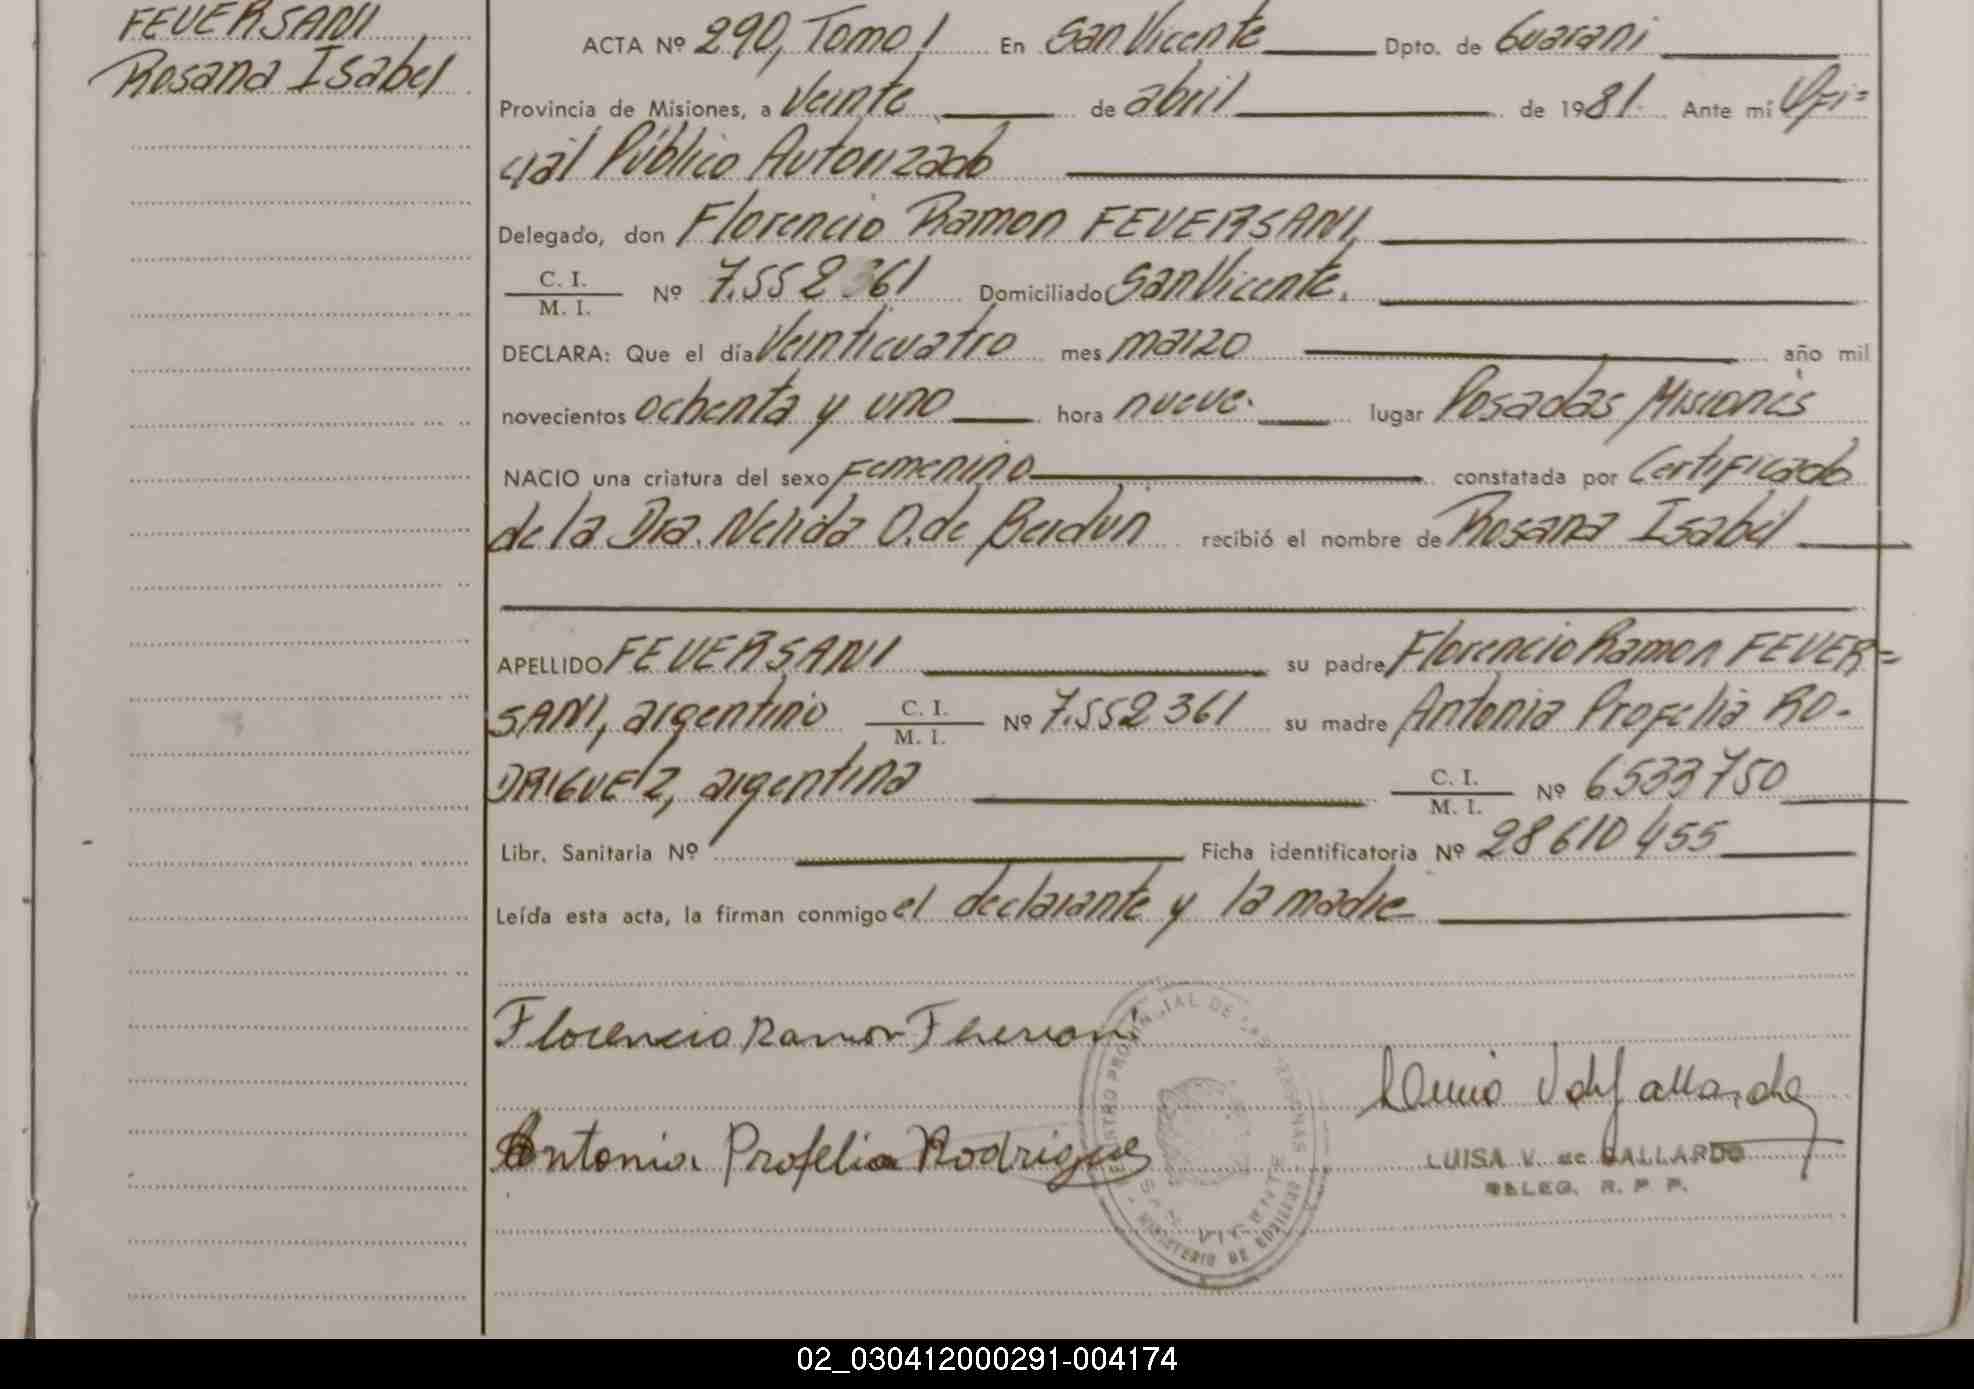 FEVERSANI
Rosana Isabel
ACTA Nº 290, Tomo I En San Vicente Dpto. de Guarani
Provincia de Misiones, a Veinte de abril de 1981. Ante mí Ofi=
cial Público Autorizado
Delegado, don Florencio Ramon FEVERSANI,
C. I. / M. I. Nº 7.552361 Domiciliado San Vicente.
DECLARA: Que el día Veinticuatro mes marzo año mil
novecientos ochenta y uno hora nueve. lugar Posadas Misiones
NACIO una criatura del sexo Femenino constatada por Certificado
de la Dra. Nelida O. de Berdun recibió el nombre de Rosana Isabel
APELLIDO FEVERSANI su padre Florencio Ramon FEVER=
SANI, argentino C. I. / M. I. Nº 7.552361 su madre Antonia Profelia RO-
DRIGUEZ, argentina C. I. / M. I. Nº 6533750
Libr. Sanitaria Nº Ficha identificatoria Nº 28610455
Leída esta acta, la firman conmigo el declarante y la madre
Florencio Ramon
Antonia Profelia Rodrigues
SAN VICENTE
MINISTERIO DE
LUISA V. de GALLARDO
DELEG. R. P. P.
02_030412000291-004174